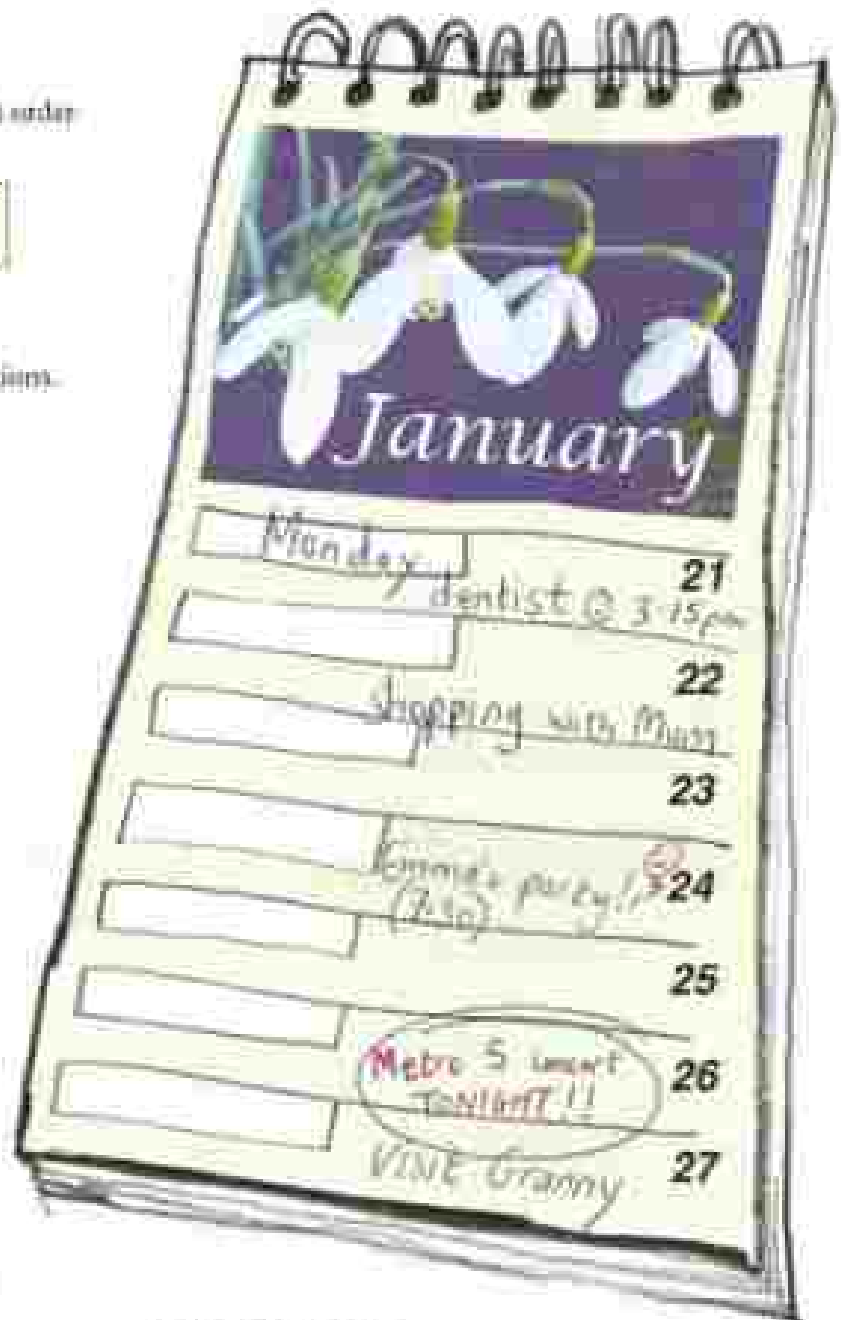 order
January
Monday
21
dentist @ 3.15pm
22
shopping with Mum
23
Emma's party!!
24
(7.30)
25
Metro 5
26
TONIGHT!!
27
Visit Granny